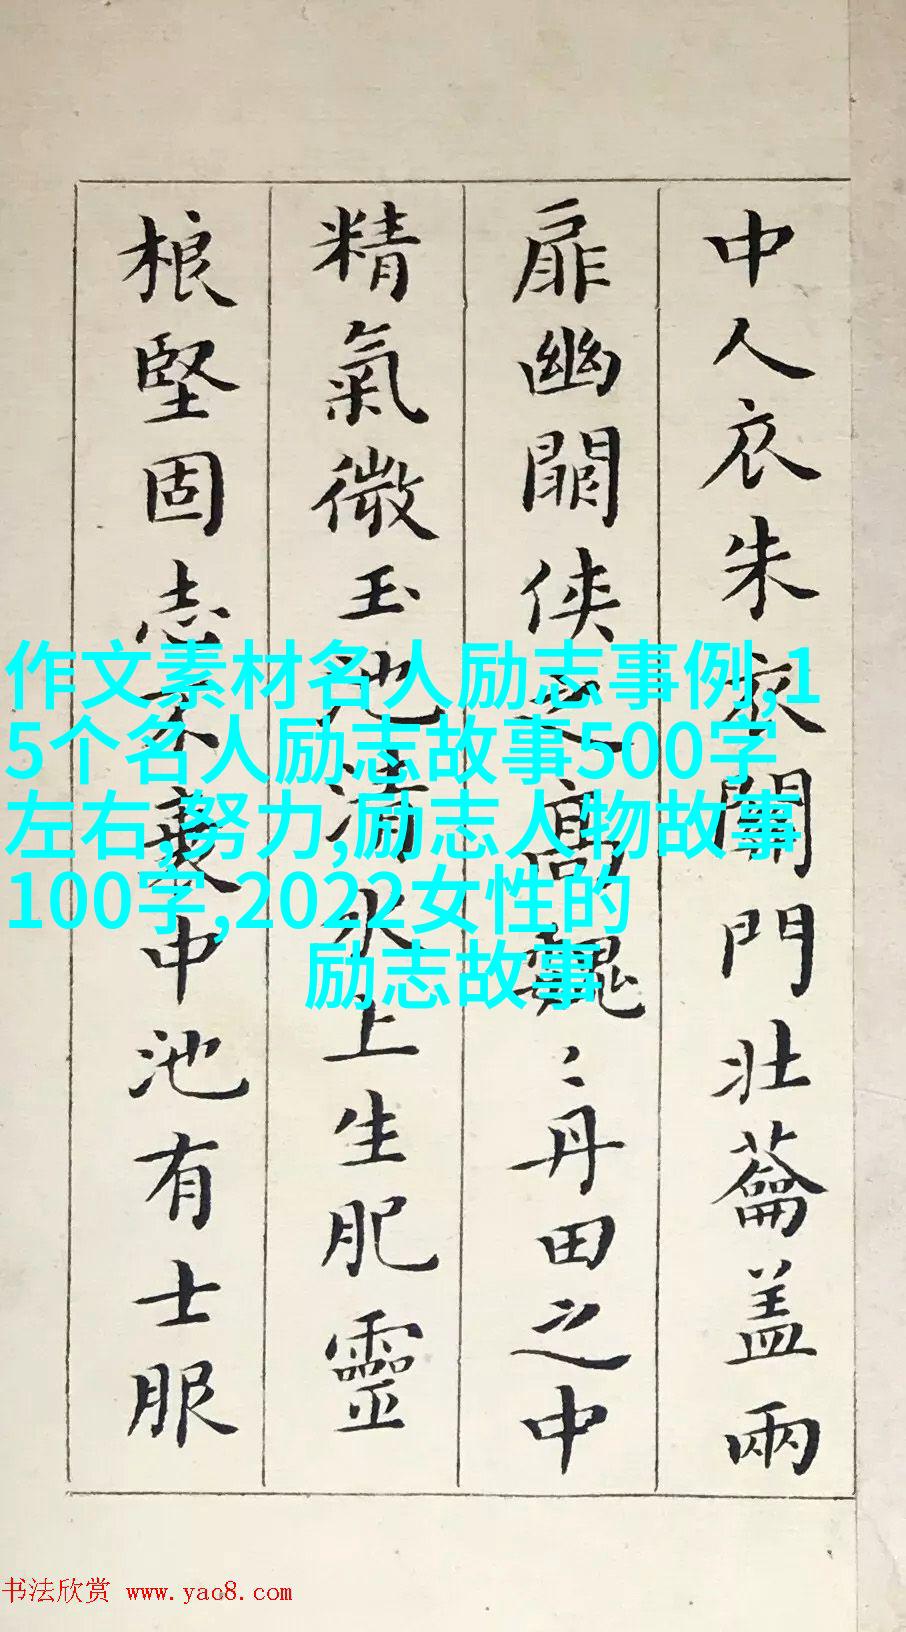 中人衣朱衣關門壯蘥盖兩
扉幽闗俠之高巍〻丹田之中
精氣微玉池清水上生肥靈
根堅固志不衰中池有士服
作文素材名人励志事例,1
5个名人励志故事500字
左右,努力,励志人物故事
100字,2022女性的
励志故事
书法欣赏 www.yac8.com